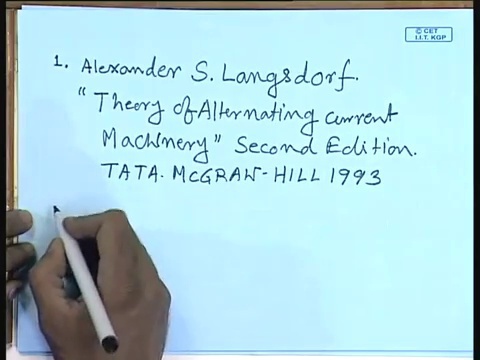 © CET
I.I.T. KGP
1. Alexander S. Langsdorf.
"Theory of Alternating current
Machinery" Second Edition.
TATA. McGRAW-HILL 1993